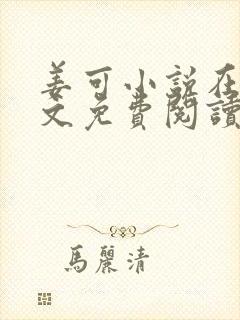 姜可小说在
文免費閱讀
馬麗清